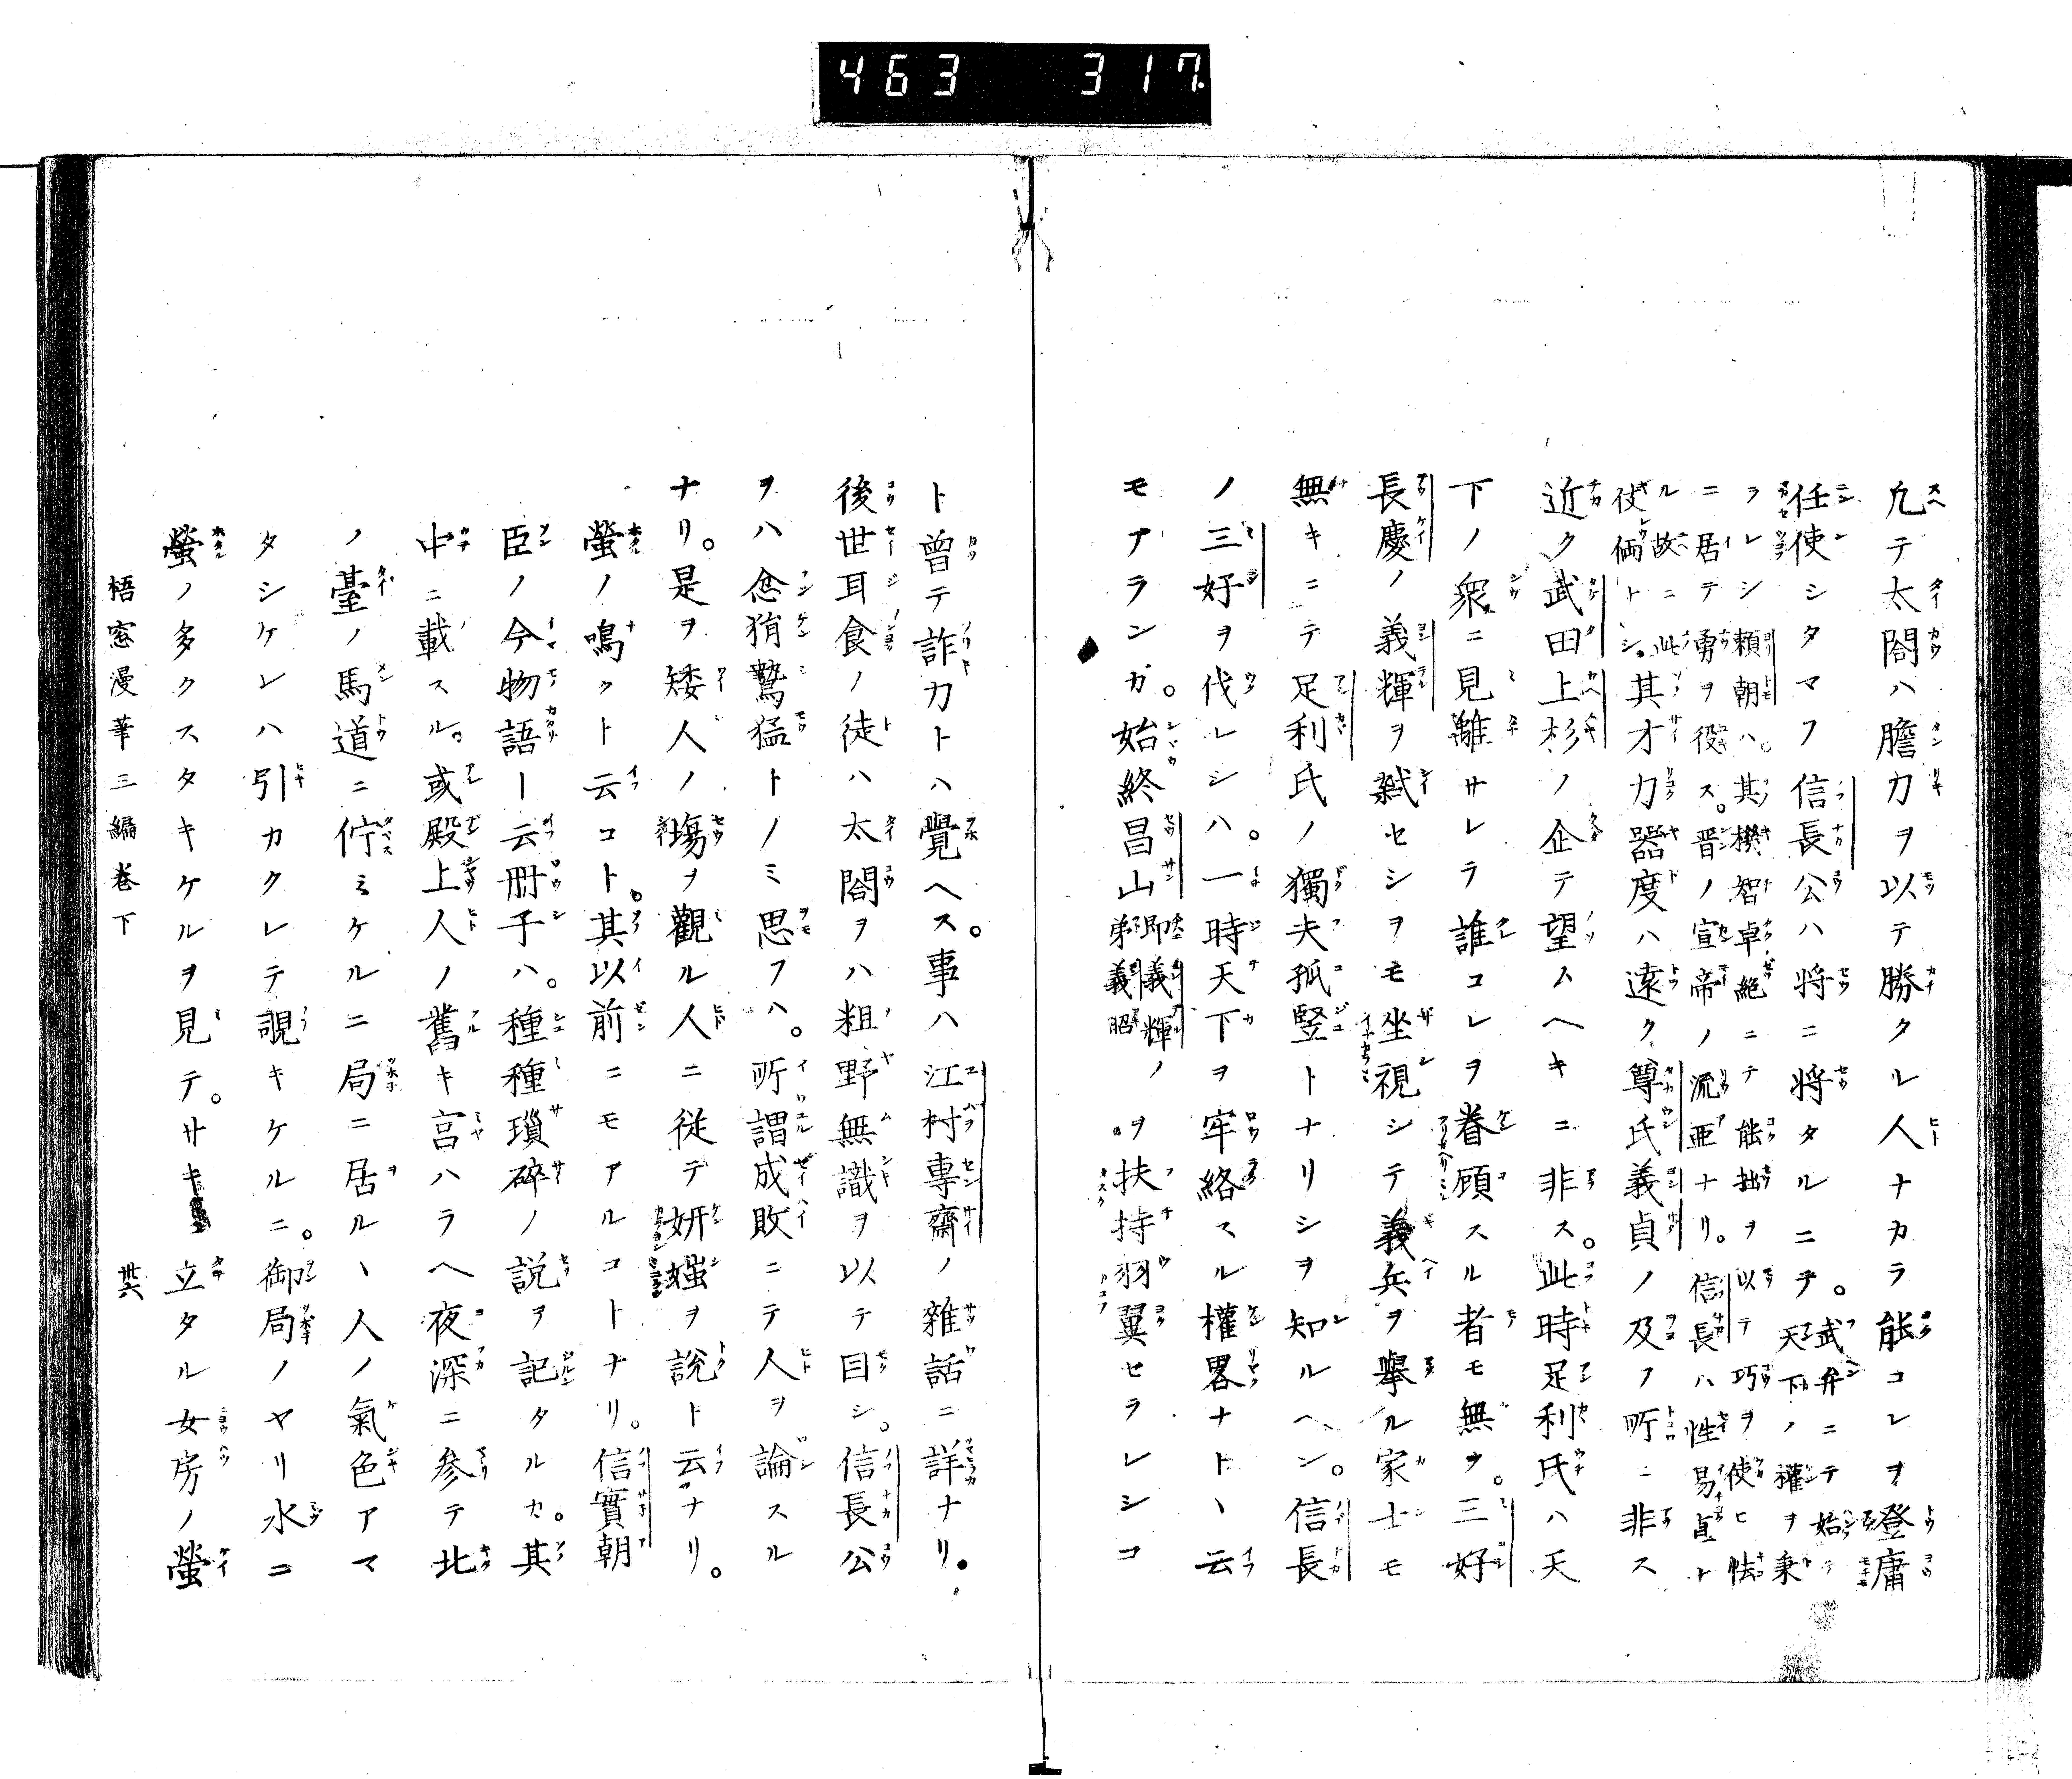 463 317
凢テ太閤ハ膽力ヲ以テ勝タル人ナカラ能コレヲ登庸
任使シタマフ信長公ハ将ニ将タルニヲ。武弁ニテ始テ
天下ノ權ヲ秉
ラレシ頼朝ハ。其機智卓絶ニテ能拙ヲ以テ巧ヲ使ヒ怯
ニ居テ勇ヲ役ス。晋ノ宣帝ノ流亜ナリ。信長ハ性易直ナ
ル故ニ此
伎倆トシ。其才力器度ハ遠ク尊氏義貞ノ及フ所ニ非ス
近ク武田上杉ノ企テ望ムヘキニ非ス。此時足利氏ハ天
下ノ衆ニ見離サレラ誰コレヲ眷顧スル者モ無ク。三好
長慶ノ義輝ヲ弑セシヲモ坐視シテ義兵ヲ擧ル家士モ
無キニテ足利氏ノ獨夫孤竪トナリシヲ知ルヘシ。信長
ノ三好ヲ伐レシハ。一時天下ヲ牢絡スル權畧ナトヽ云
モアランガ。始終昌山即義輝ノ
弟義昭ヲ扶持羽翼セラレシコ
ト曾テ詐力トハ覺ヘス。事ハ江村專齋ノ雜話ニ詳ナリ。
後世耳食ノ徒ハ太閤ヲハ粗野無識ヲ以テ目シ。信長公
ヲハ忿狷鷙猛トノミ思フハ。所謂成敗ニテ人ヲ論スル
ナリ。是ヲ矮人ノ塲ヲ觀ル人ニ從テ妍媸ヲ說ト云ナリ。
螢ノ鳴クト云コト。其以前ニモアルコトナリ。信實朝
臣ノ今物語ー云冊子ハ。種種瑣碎ノ説ヲ記タルカ。其
中ニ載スル。或殿上人ノ舊キ宮ハラヘ夜深ニ参テ北
ノ臺ノ馬道ニ佇ミケルニ局ニ居ルヽ人ノ氣色アマ
タシケレハ引カクレテ覗キケルニ。御局ノヤリ水ニ
螢ノ多クスタキケルヲ見テ。サキ立タル女房ノ螢
梧窓漫筆三編巻下
卅六